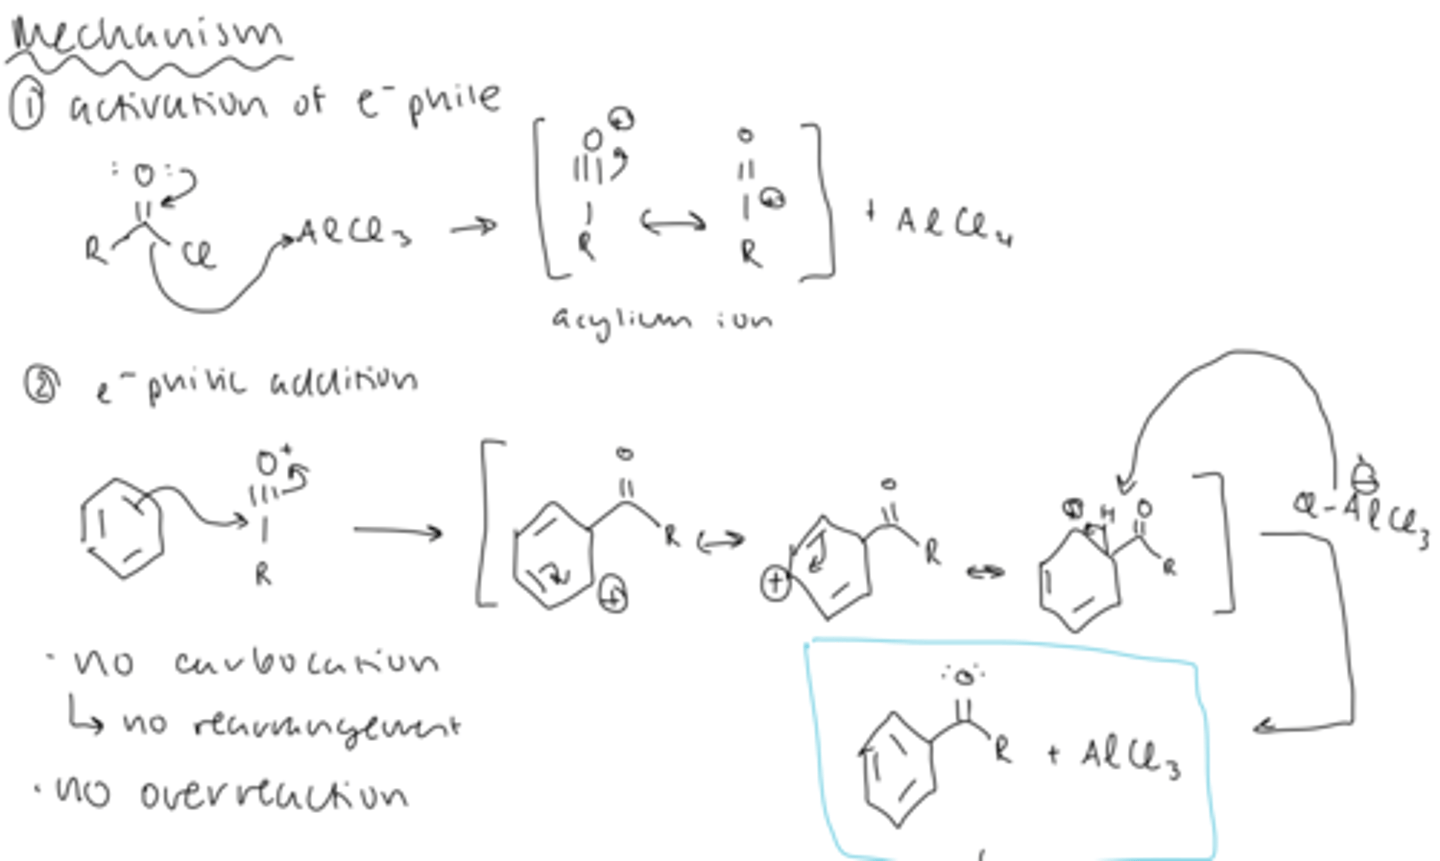 Mechanism
① activation of e⁻phile
:O:
R Cl AlCl₃ → [ O⊕ ≡ R ↔ O = ⊕ R ] + AlCl₄
acylium ion
② e⁻philic addition
O⁺ R → [ O R ⊕ ↔ O R ⊕ ↔ ⊕ H O R ] Cl-AlCl₃ ⊖
· no carbocation
↳ no rearrangement
· no overreaction
:O:
R + AlCl₃